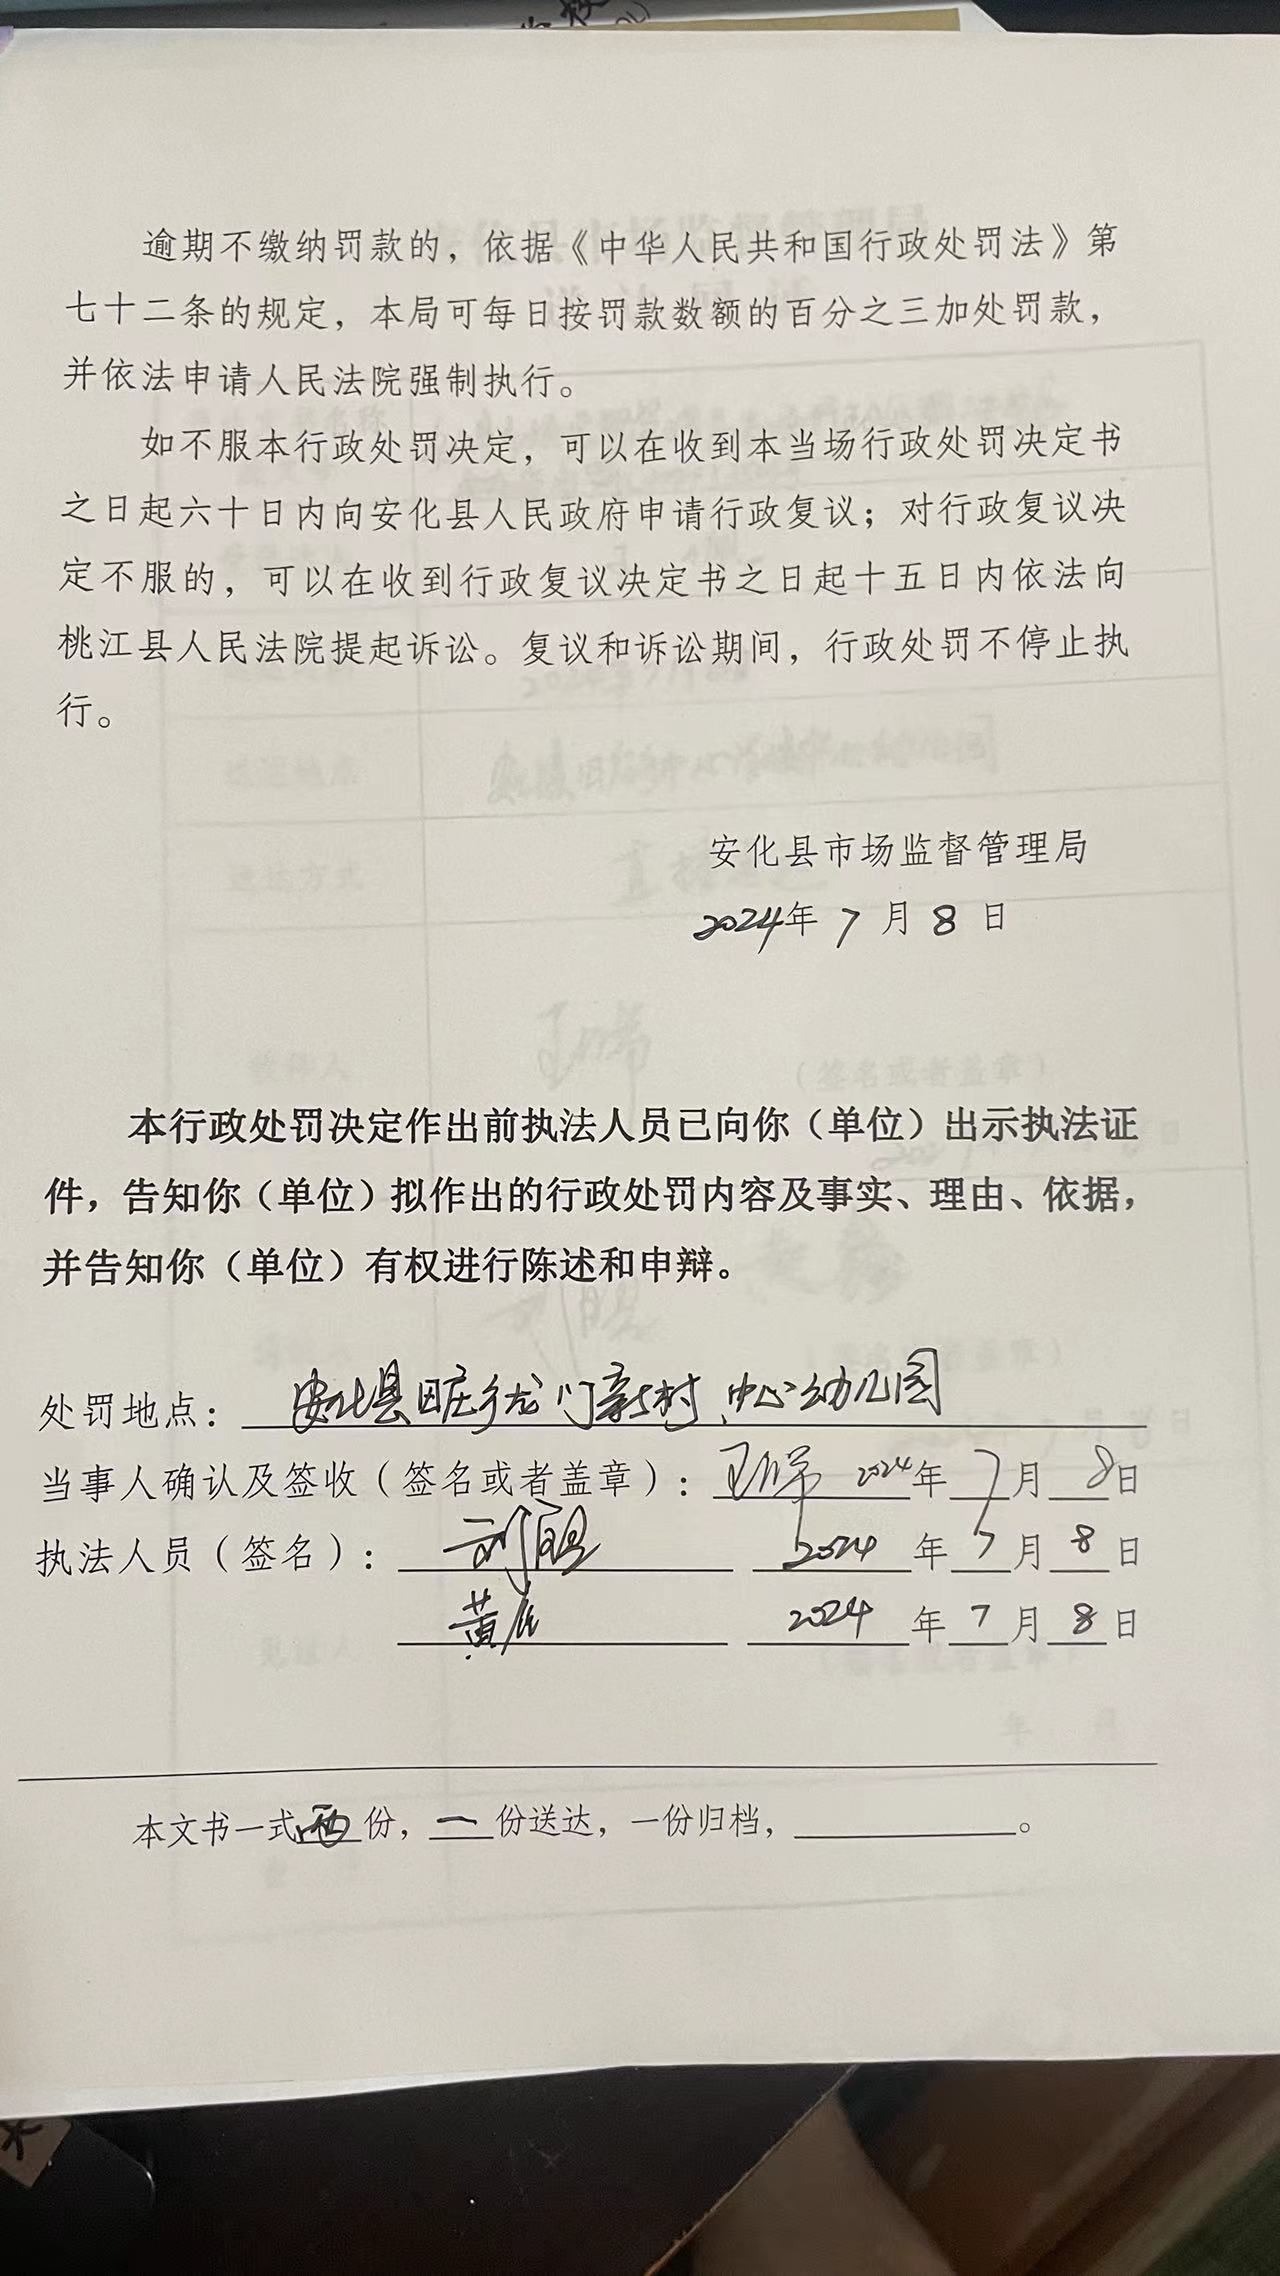 逾期不缴纳罚款的，依据《中华人民共和国行政处罚法》第
七十二条的规定，本局可每日按罚款数额的百分之三加处罚款，
并依法申请人民法院强制执行。
如不服本行政处罚决定，可以在收到本当场行政处罚决定书
之日起六十日内向安化县人民政府申请行政复议；对行政复议决
定不服的，可以在收到行政复议决定书之日起十五日内依法向
桃江县人民法院提起诉讼。复议和诉讼期间，行政处罚不停止执
行。
安化县市场监督管理局
2024年 7 月 8 日
本行政处罚决定作出前执法人员已向你（单位）出示执法证
件，告知你（单位）拟作出的行政处罚内容及事实、理由、依据，
并告知你（单位）有权进行陈述和申辩。
处罚地点：安化县田庄乡龙门新村中心幼儿园
当事人确认及签收（签名或者盖章）：王 2024年 7月 8日
执法人员（签名）：刘 2024 年 7 月 8 日
黄 2024 年 7 月 8 日
本文书一式两份，一份送达，一份归档，。